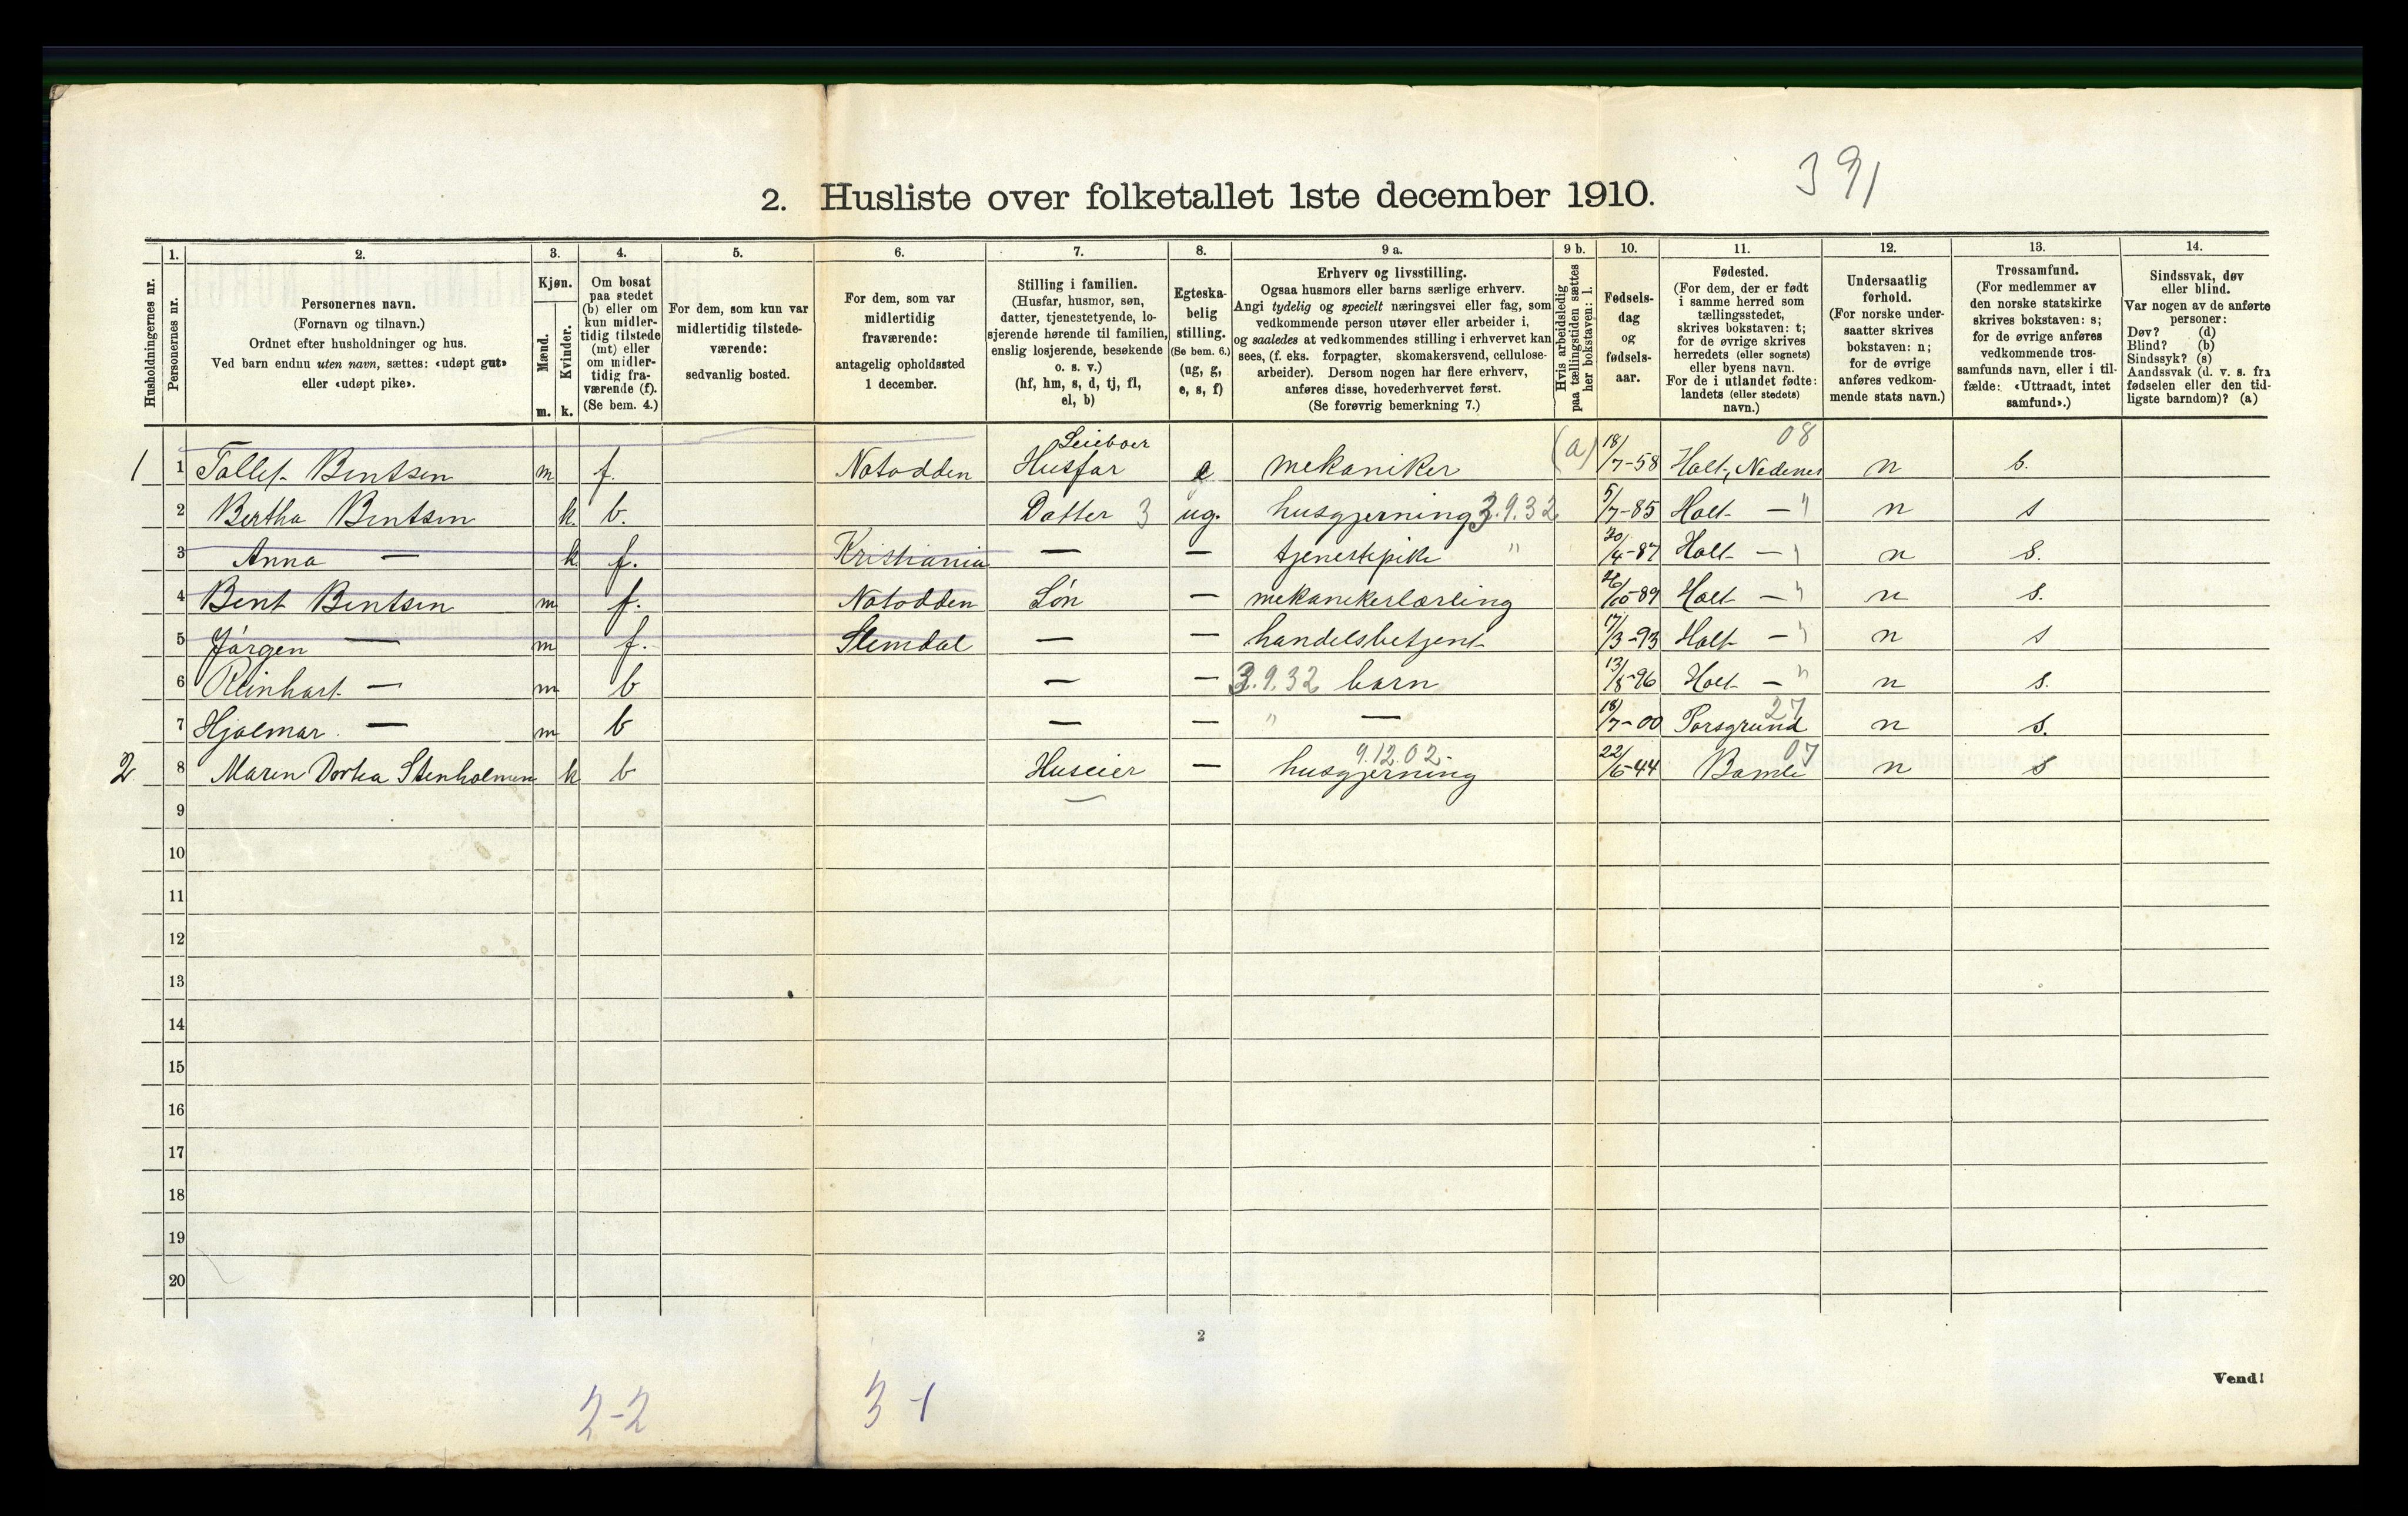 391
2. Husliste over folketallet 1ste december 1910.
Husholdningernes nr.
1.
Personernes nr.
2.
Personernes navn.
(Fornavn og tilnavn.)
Ordnet efter husholdninger og hus.
Ved barn endnu uten navn, sættes: «udøpt gut»
eller «udøpt pike».
3.
Kjøn.
Mænd.
Kvinder.
m. k.
4.
Om bosat
paa stedet
(b) eller om
kun midler-
tidig tilstede
(mt) eller
om midler-
tidig fra-
værende (f).
(Se bem. 4.)
5.
For dem, som kun var
midlertidig tilstede-
værende:
sedvanlig bosted.
6.
For dem, som var
midlertidig
fraværende:
antagelig opholdssted
1 december.
7.
Stilling i familien.
(Husfar, husmor, søn,
datter, tjenestetyende, lo-
sjerende hørende til familien,
enslig losjerende, besøkende
o. s. v.)
(hf, hm, s, d, tj, fl,
el, b)
8.
Egteska-
belig
stilling.
(Se bem. 6.)
(ug, g,
e, s, f)
9 a.
Erhverv og livsstilling.
Ogsaa husmors eller barns særlige erhverv.
Angi tydelig og specielt næringsvei eller fag, som
vedkommende person utøver eller arbeider i,
og saaledes at vedkommendes stilling i erhvervet kan
sees, (f. eks. forpagter, skomakersvend, cellulose-
arbeider). Dersom nogen har flere erhverv,
anføres disse, hovederhvervet først.
(Se forøvrig bemerkning 7.)
9 b.
Hvis arbeidsledig
paa tællingstiden sættes
her bokstaven: l.
10.
Fødsels-
dag
og
fødsels-
aar.
11.
Fødested.
(For dem, der er født
i samme herred som
tællingsstedet,
skrives bokstaven: t;
for de øvrige skrives
herredets (eller sognets)
eller byens navn.
For de i utlandet fødte:
landets (eller stedets)
navn.)
12.
Undersaatlig
forhold.
(For norske under-
saatter skrives
bokstaven: n;
for de øvrige
anføres vedkom-
mende stats navn.)
13.
Trossamfund.
(For medlemmer av
den norske statskirke
skrives bokstaven: s;
for de øvrige anføres
vedkommende tros-
samfunds navn, eller i til-
fælde: «Uttraadt, intet
samfund».)
14.
Sindssvak, døv
eller blind.
Var nogen av de anførte
personer:
Døv? (d)
Blind? (b)
Sindssyk? (s)
Aandssvak (d. v. s. fra
fødselen eller den tid-
ligste barndom)? (a)
Leieboer 08
1 1 Tallef Bentsen m f. Notodden Husfar e mekaniker (a) 18/7-58 Holt, Nedenes n s.
2 Bertha Bentsen k. b. Datter 3 ug. husgjerning 3.9.32 5/7-85 Holt — " n s
3 Anna — k f. Kristiania — — tjenestepike " 20/4-87 Holt — " n s.
4 Bent Bentsen m f. Notodden Søn — mekanikerlærling 26/10-89 Holt — " n s.
5 Jørgen — m f. Slemdal — — handelsbetjent 17/3-93 Holt — " n s
6 Reinhart — m b — — 3.9.32 barn 13/8-96 Holt — " n s.
7 Hjalmar — m b — — " — 18/7-00 Porsgrund 27 n s.
2 8 Maren Dortea Stenholmen k b Huseier — husgjerning 9.12.02 22/6-44 Bamle 07 n s
9
10
11
12
13
14
15
16
17
18
19
20
2
Vend!
2-2 3-1